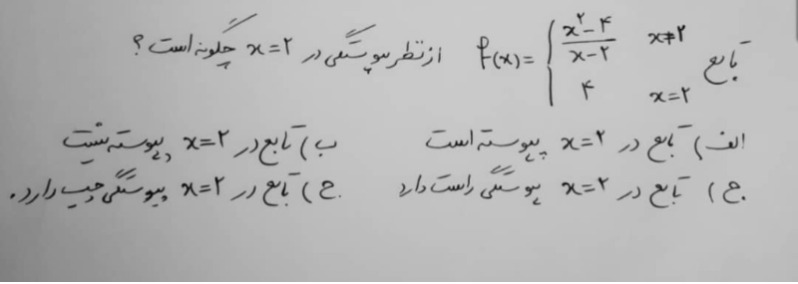 تابع f(x) = { (x^۲ - ۴)/(x - ۲)  x≠۲ ; ۴  x=۲ از نظر پیوستگی در x=۲ چگونه است؟
الف) تابع در x=۲ پیوسته است ب) تابع در x=۲ پیوسته نیست
ج) تابع در x=۲ پیوستگی راست دارد ج) تابع در x=۲ پیوستگی چپ دارد.